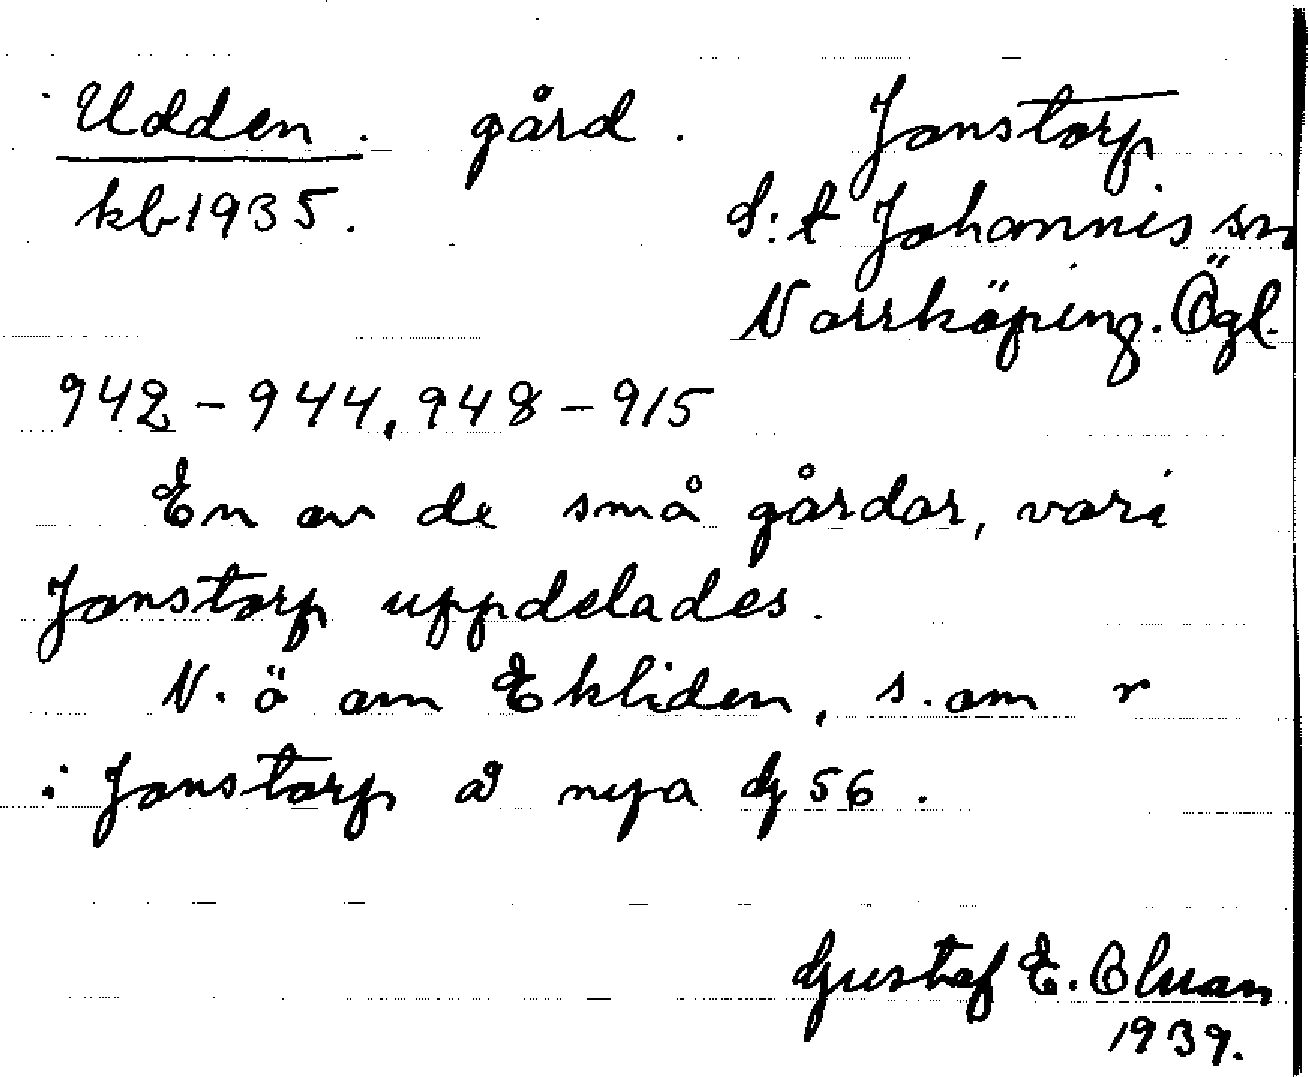 Udden. gård. Jonstorp
kb 1935. S:t Johannis sn
Norrköping. Ögl.
942-944, 948-915
En av de små gårdar, vari
Jonstorp uppdelades.
N. ö om Ekliden, s. om r
i Jonstorp å nya G 56.
Gustaf E. Olman
1939.